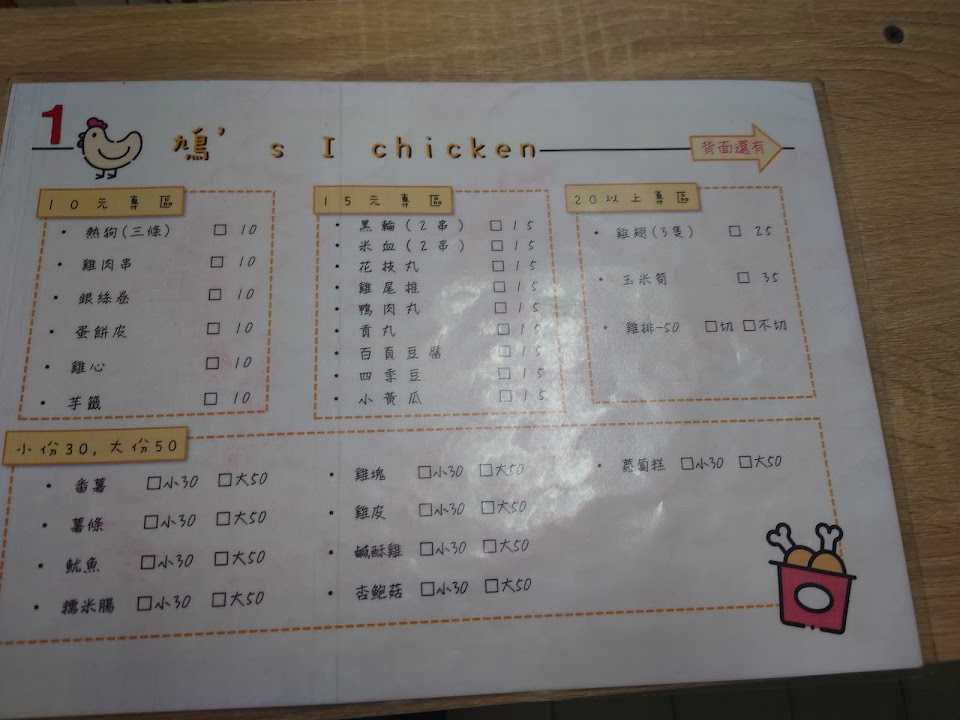 1
鳩's I chicken
背面還有
10元專區
• 熱狗(三條) □ 10
• 雞肉串 □ 10
• 銀絲卷 □ 10
• 蛋餅皮 □ 10
• 雞心 □ 10
• 芋籤 □ 10
15元專區
• 黑輪(2串) □ 15
• 米血(2串) □ 15
• 花枝丸 □ 15
• 雞尾椎 □ 15
• 鴨肉丸 □ 15
• 貢丸 □ 15
• 百頁豆腐 □ 15
• 四季豆 □ 15
• 小黃瓜 □ 15
20以上專區
• 雞翅(3隻) □ 25
• 玉米筍 □ 35
• 雞排-50 □切 □不切
小份30,大份50
• 番薯 □小30 □大50
• 薯條 □小30 □大50
• 魷魚 □小30 □大50
• 糯米腸 □小30 □大50
• 雞塊 □小30 □大50
• 雞皮 □小30 □大50
• 鹹酥雞 □小30 □大50
• 杏鮑菇 □小30 □大50
• 蘿蔔糕 □小30 □大50